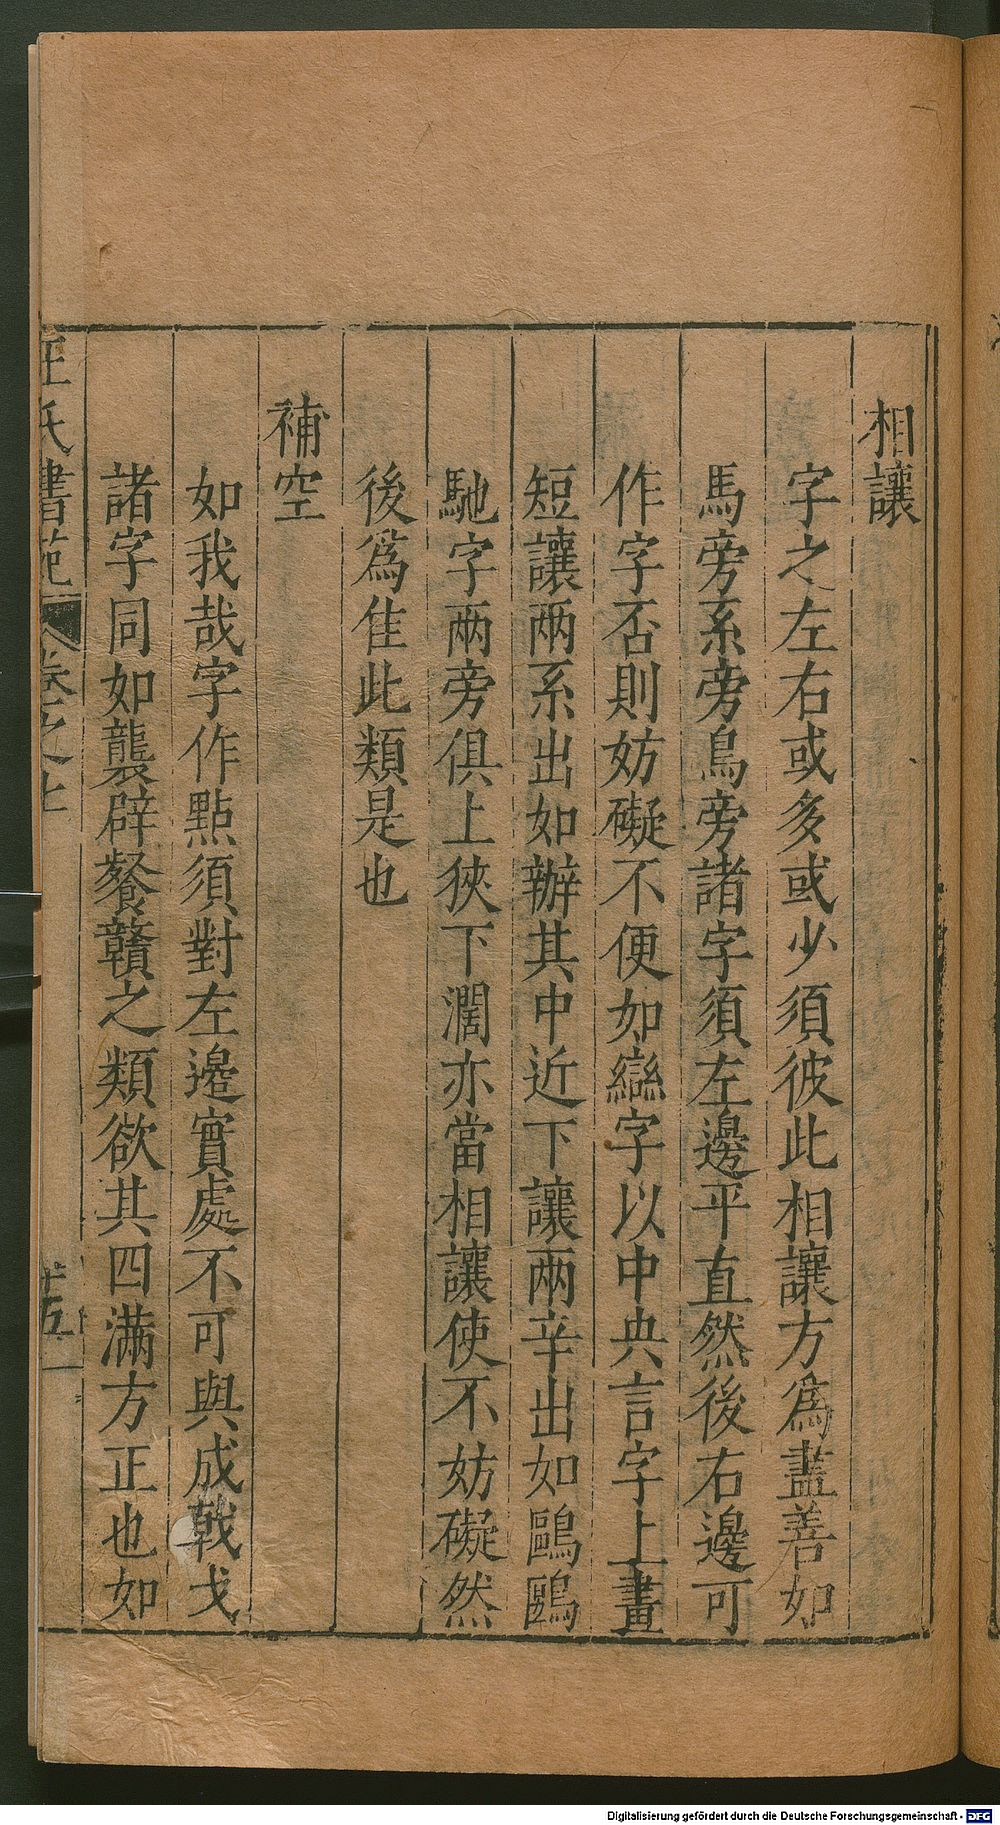 相讓
字之左右或多或少須彼此相讓方爲盡善如
馬旁系旁鳥旁諸字須左邊平直然後右邊可
作字否則妨礙不便如䜌字以中央言字上畫
短讓兩系出如辦其中近下讓兩辛出如鷗䳼
馳字兩旁俱上狹下濶亦當相讓使不妨礙然
後爲佳此類是也
補空
如我哉字作點須對左邊實處不可與成戟戈
諸字同如襲辟餐贛之類欲其四滿方正也如
王氏書苑 卷之七 十五
Digitalisierung gefördert durch die Deutsche Forschungsgemeinschaft - DFG